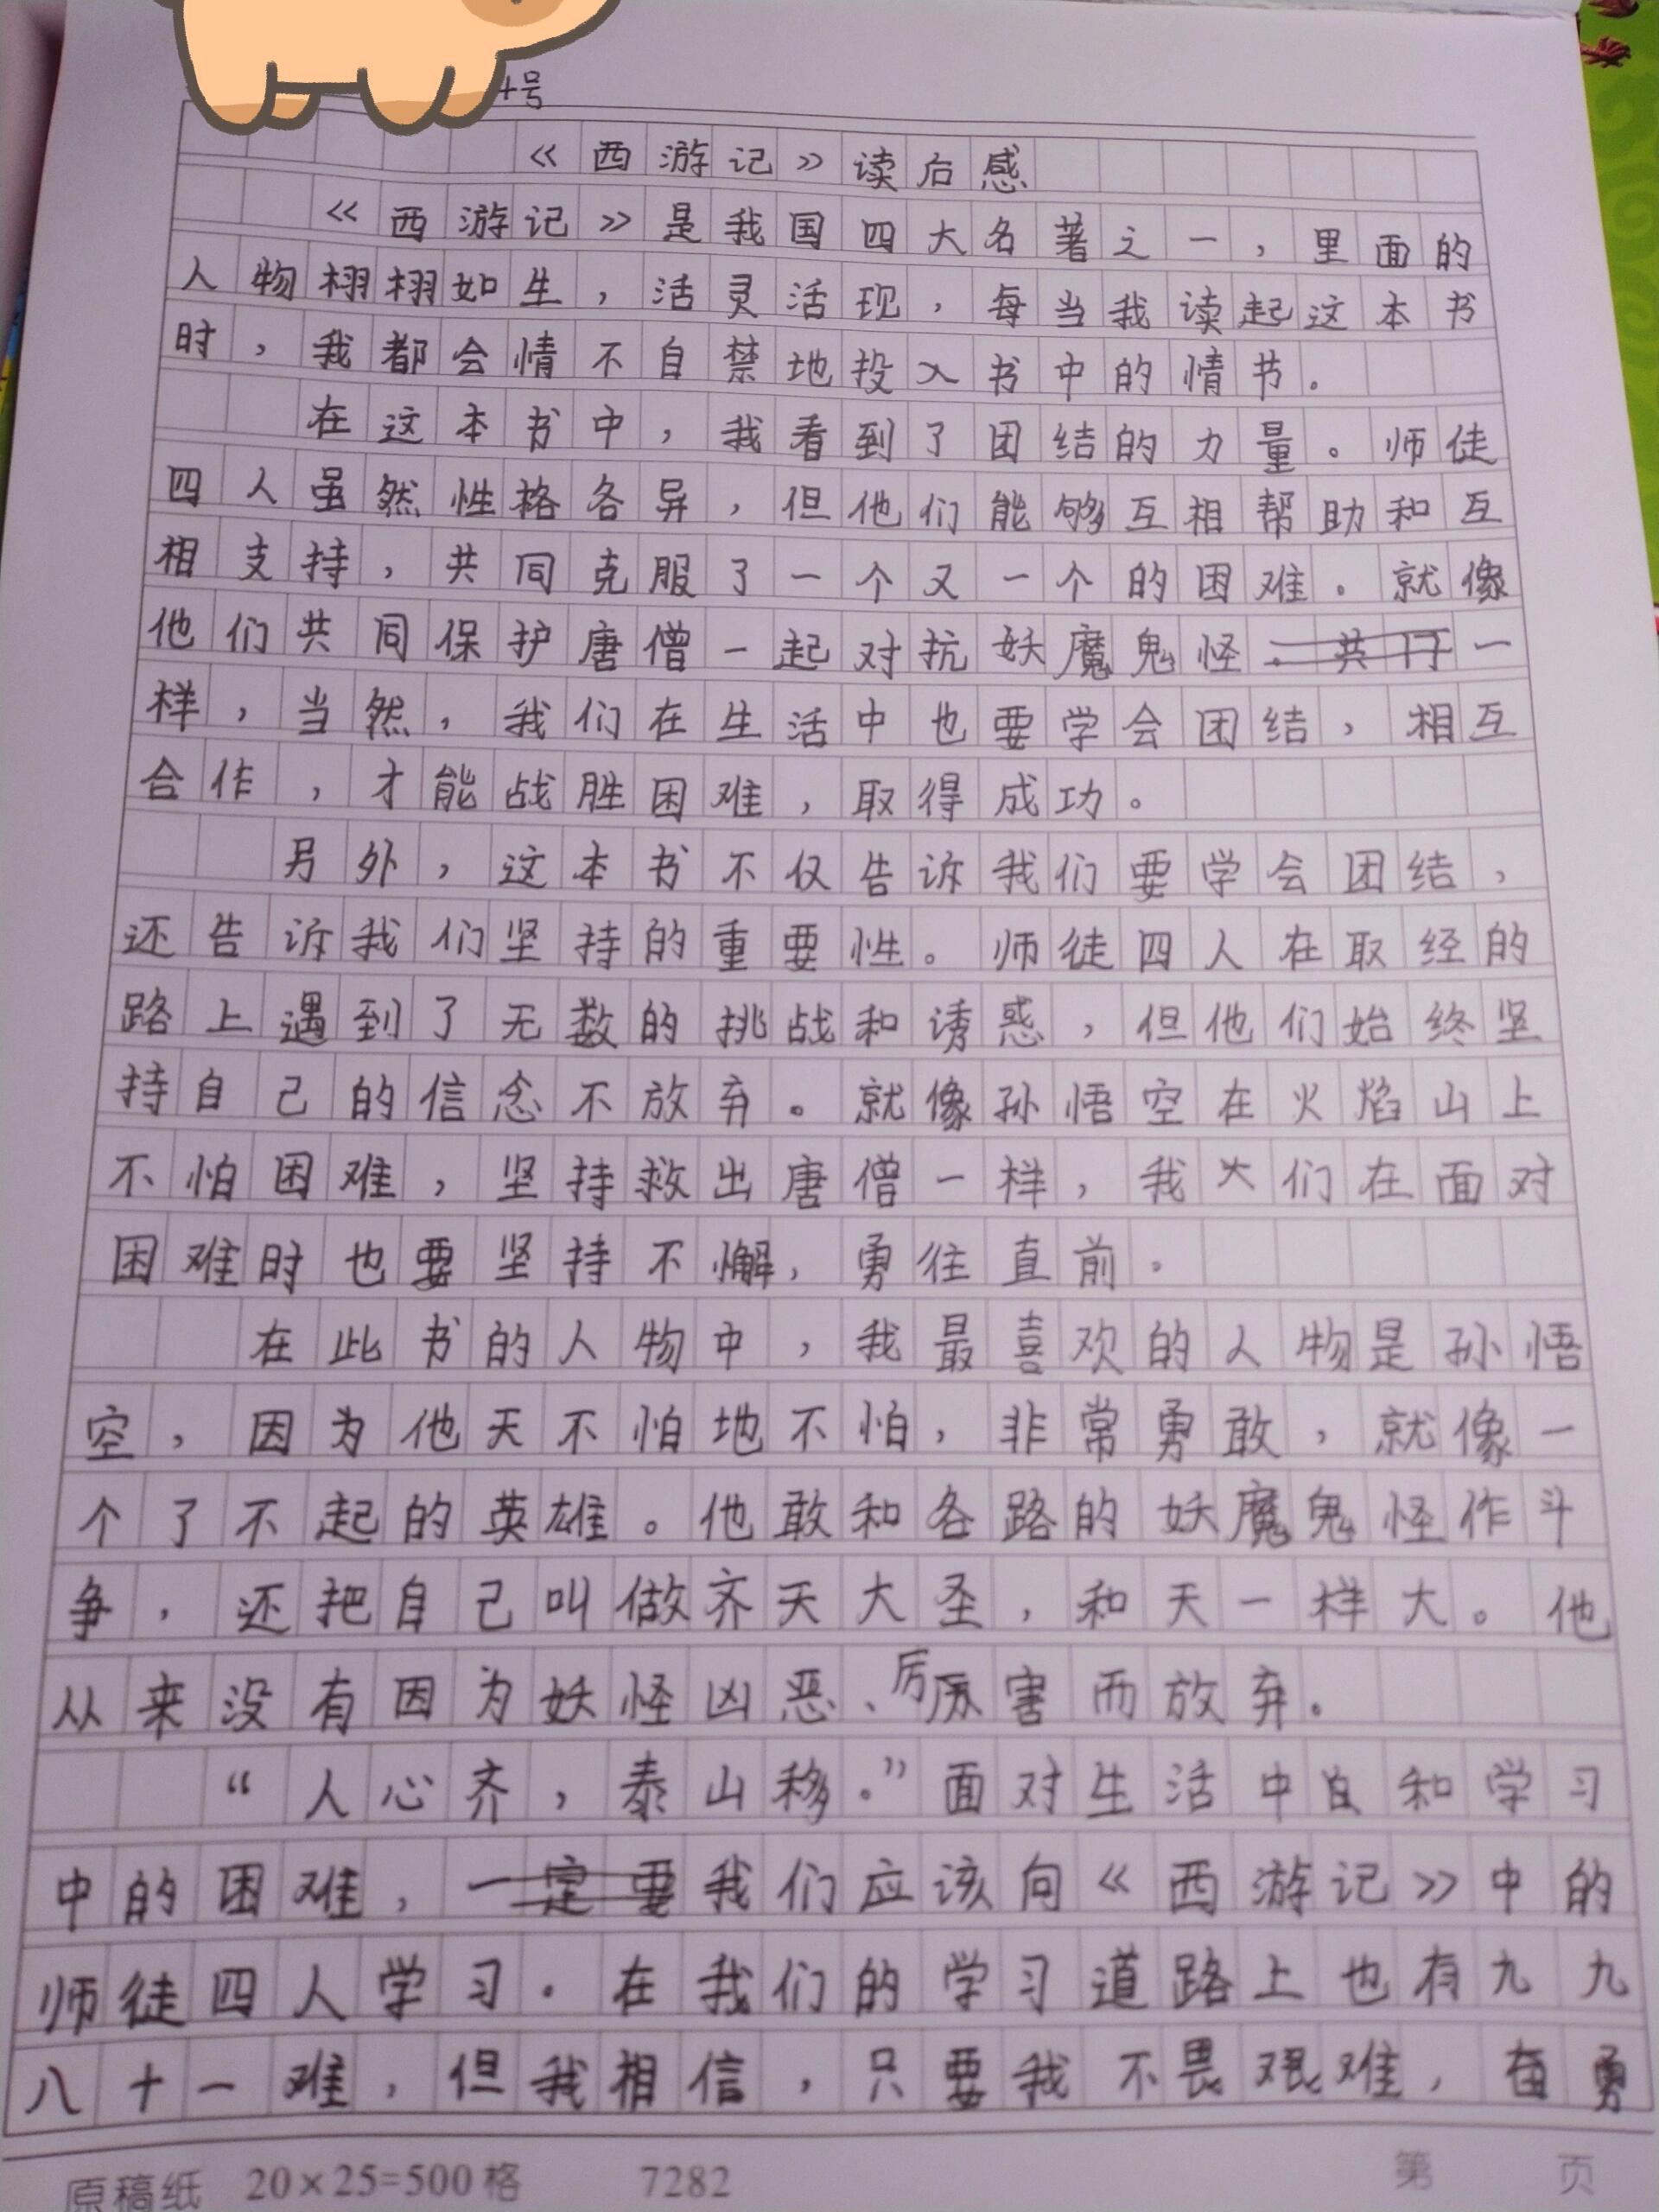 4号
《西游记》读后感
《西游记》是我国四大名著之一，里面的
人物栩栩如生，活灵活现，每当我读起这本书
时，我都会情不自禁地投入书中的情节。
在这本书中，我看到了团结的力量。师徒
四人虽然性格各异，但他们能够互相帮助和互
相支持，共同克服了一个又一个的困难。就像
他们共同保护唐僧一起对抗妖魔鬼怪一
样，当然，我们在生活中也要学会团结，相互
合作，才能战胜困难，取得成功。
另外，这本书不仅告诉我们要学会团结，
还告诉我们坚持的重要性。师徒四人在取经的
路上遇到了无数的挑战和诱惑，但他们始终坚
持自己的信念不放弃。就像孙悟空在火焰山上
不怕困难，坚持救出唐僧一样，我们在面对
困难时也要坚持不懈，勇往直前。
在此书的人物中，我最喜欢的人物是孙悟
空，因为他天不怕地不怕，非常勇敢，就像一
个了不起的英雄。他敢和各路的妖魔鬼怪作斗
争，还把自己叫做齐天大圣，和天一样大。他
从来没有因为妖怪凶恶、厉害而放弃。
“人心齐，泰山移。”面对生活中和学习
中的困难，我们应该向《西游记》中的
师徒四人学习。在我们的学习道路上也有九九
八十一难，但我相信，只要我不畏艰难，奋勇
原稿纸 20×25=500格 7282 第 页